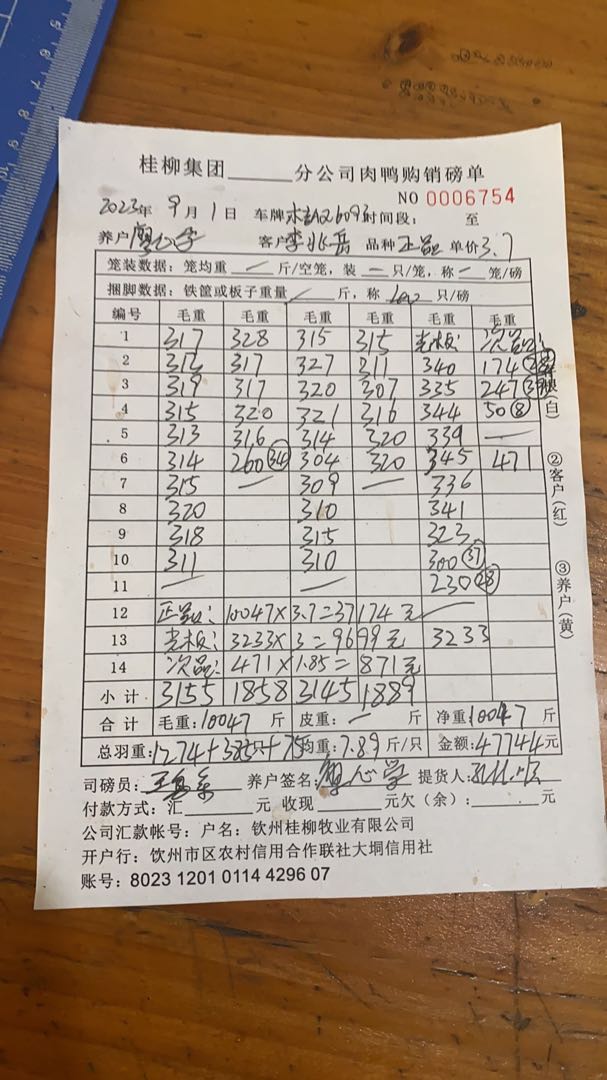 桂柳集团______分公司肉鸭购销磅单
NO 0006754
2023年 9月1日 车牌 6093 时间段: 至
养户 廖心学 客户 李兆岳 品种 正品 单价 3.7
笼装数据: 笼均重 — 斤/空笼, 装 — 只/笼, 称 — 笼/磅
捆脚数据: 铁筐或板子重量 — 斤, 称 只/磅
编号 毛重 毛重 毛重 毛重 毛重 毛重
1 317 328 315 315 次品:
2 317 327 311 340 174
3 319 317 320 307 335 247
4 315 320 321 316 344 50 ⑧
5 313 316 314 320 339 —
6 314 260 (34) 304 320 345 471
7 315 — 309 — 336
8 320 310 341
9 318 315 323
10 311 310 300 (37)
11 — — 230 (28)
12 正品: 10047×3.7=37174元 —
13 3233×3=9699元 3233
14 次品: 471×1.85=871元
小计 3155 1858 3145 1889
合计 毛重: 10047 斤 皮重: — 斤 净重 10047 斤
总羽重: 1274+385只+75 均重: 7.89 斤/只 金额: 47744元
(白)
②客户(红)
③养户(黄)
司磅员: 养户签名: 廖心学 提货人:
付款方式: 汇______元 收现______元欠(余):______元
公司汇款帐号: 户名: 钦州桂柳牧业有限公司
开户行: 钦州市区农村信用合作联社大垌信用社
账号: 8023 1201 0114 4296 07